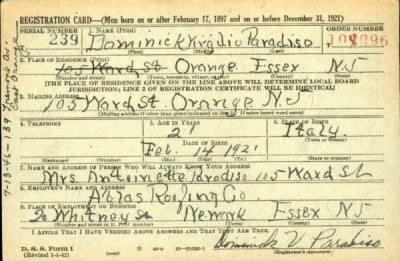 REGISTRATION CARD—(Men born on or after February 17, 1897 and on or before December 31, 1921)
SERIAL NUMBER 1. NAME (Print) ORDER NUMBER
239 Dominick Virgilio Paradiso
2. PLACE OF RESIDENCE (Print)
105 Ward St. Orange Essex N.J
(Number and street) (Town, township, village, or city) (County) (State)
[THE PLACE OF RESIDENCE GIVEN ON THE LINE ABOVE WILL DETERMINE LOCAL BOARD
JURISDICTION; LINE 2 OF REGISTRATION CERTIFICATE WILL BE IDENTICAL]
3. MAILING ADDRESS
105 Ward St. Orange N.J
[Mailing address if other than place indicated on line 2. If same insert word same]
4. TELEPHONE 5. AGE IN YEARS 6. PLACE OF BIRTH
21
DATE OF BIRTH Italy
Feb. 14 1921
(Exchange) (Number) (Mo.) (Day) (Yr.) (State or country)
7. NAME AND ADDRESS OF PERSON WHO WILL ALWAYS KNOW YOUR ADDRESS
Mrs Antoinette Paradiso 105 Ward St
8. EMPLOYER'S NAME AND ADDRESS
Roofing Co.
9. PLACE OF EMPLOYMENT OR BUSINESS
20 Whitney St Newark Essex N J
(Number and street or R. F. D. number) (Town) (County) (State)
I AFFIRM THAT I HAVE VERIFIED ABOVE ANSWERS AND THAT THEY ARE TRUE.
D. S. S. Form 1
(Revised 1-1-42)
Dominick V Paradiso
(Registrant's signature)
7-13-46-139